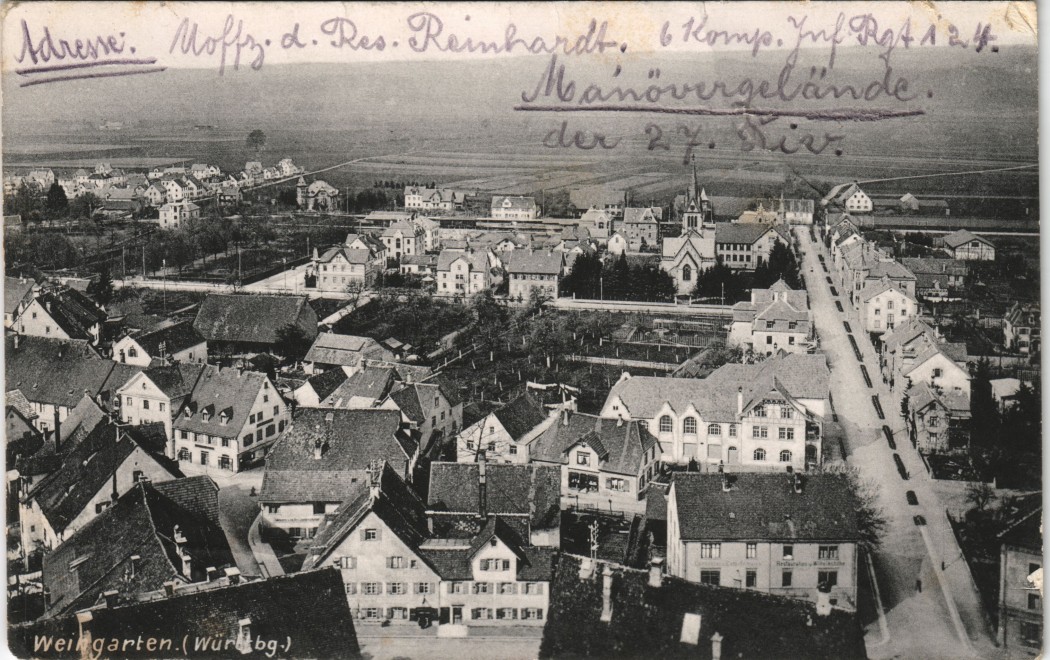 Adresse: Uoffz. d. Res. Reinhardt. 6 Komp. Inf Rgt 124.
Manövergelände.
der 27. Div.
Restauration
Weingarten. (Württbg.)